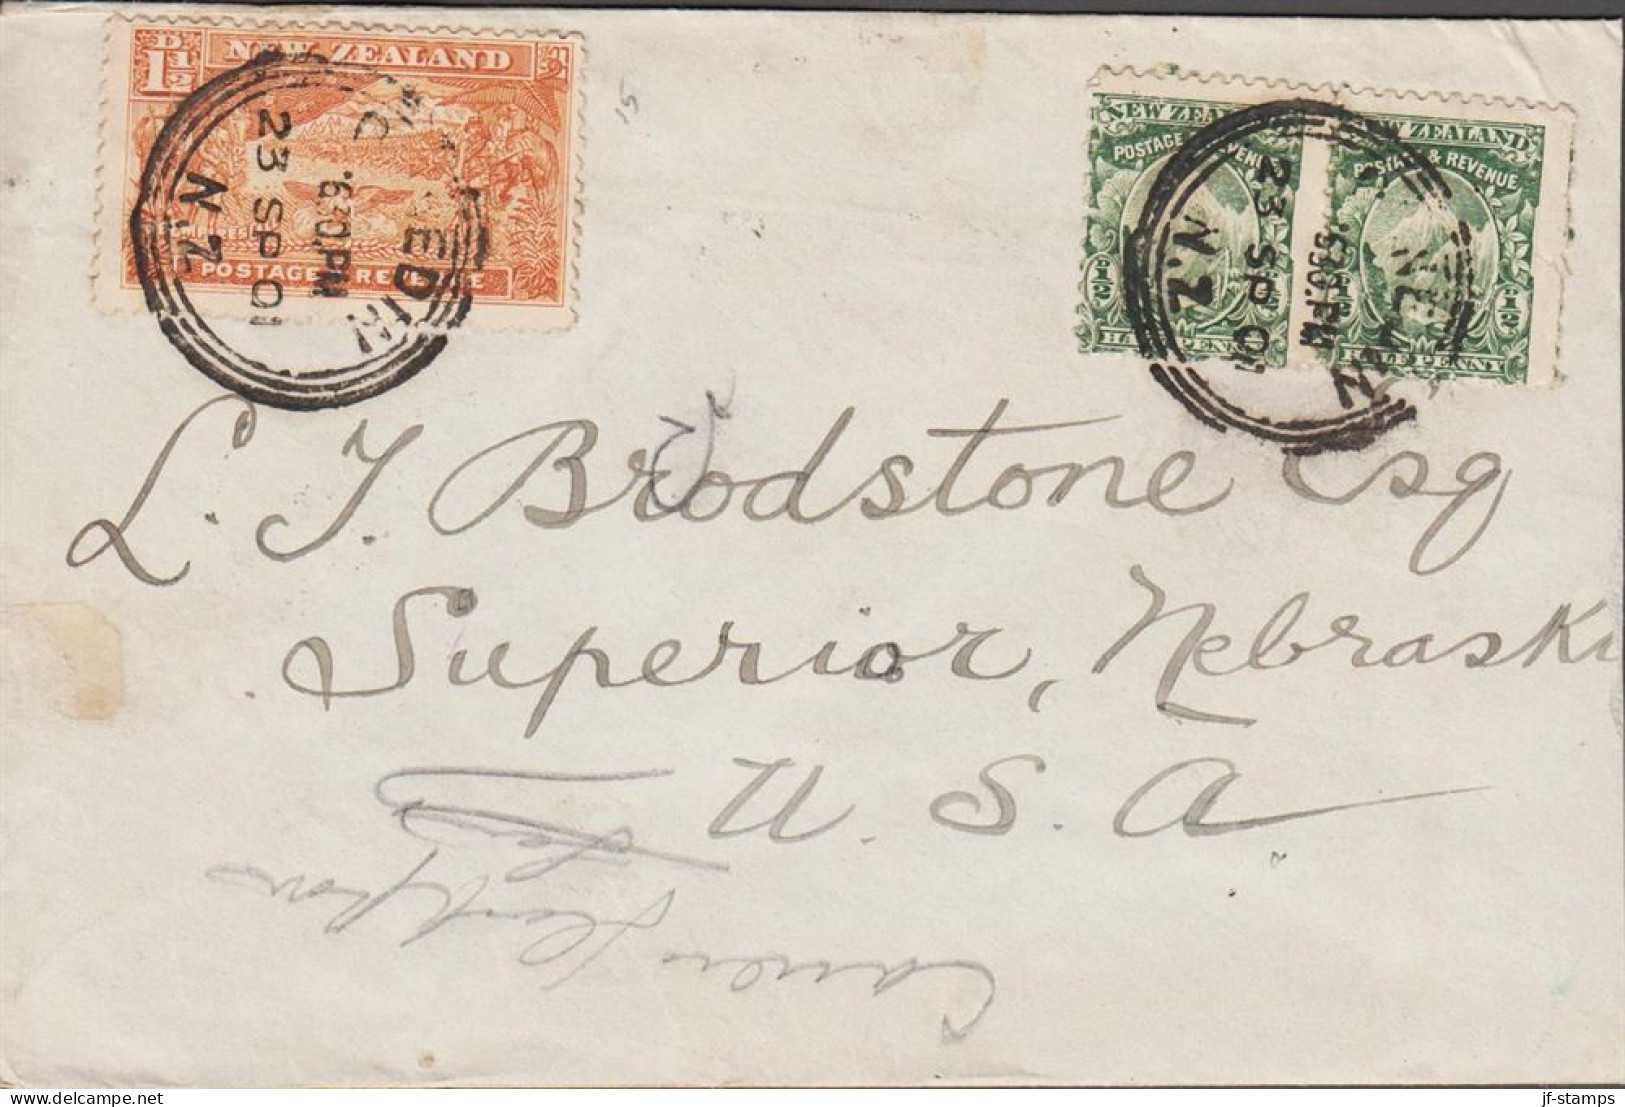 1½D
NEW ZEALAND
POSTAGE REVENUE
DUNEDIN
23 SP 01
6.30.PM
N.Z
15
NEW ZEALAND
POSTAGE & REVENUE
½
HALF PENNY
NEW ZEALAND
POSTAGE & REVENUE
½
HALF PENNY
23 SP 01
6.30.PM
N.Z
L. T. Brodstone Esq
Superior, Nebraska
U. S. A
jf-stamps